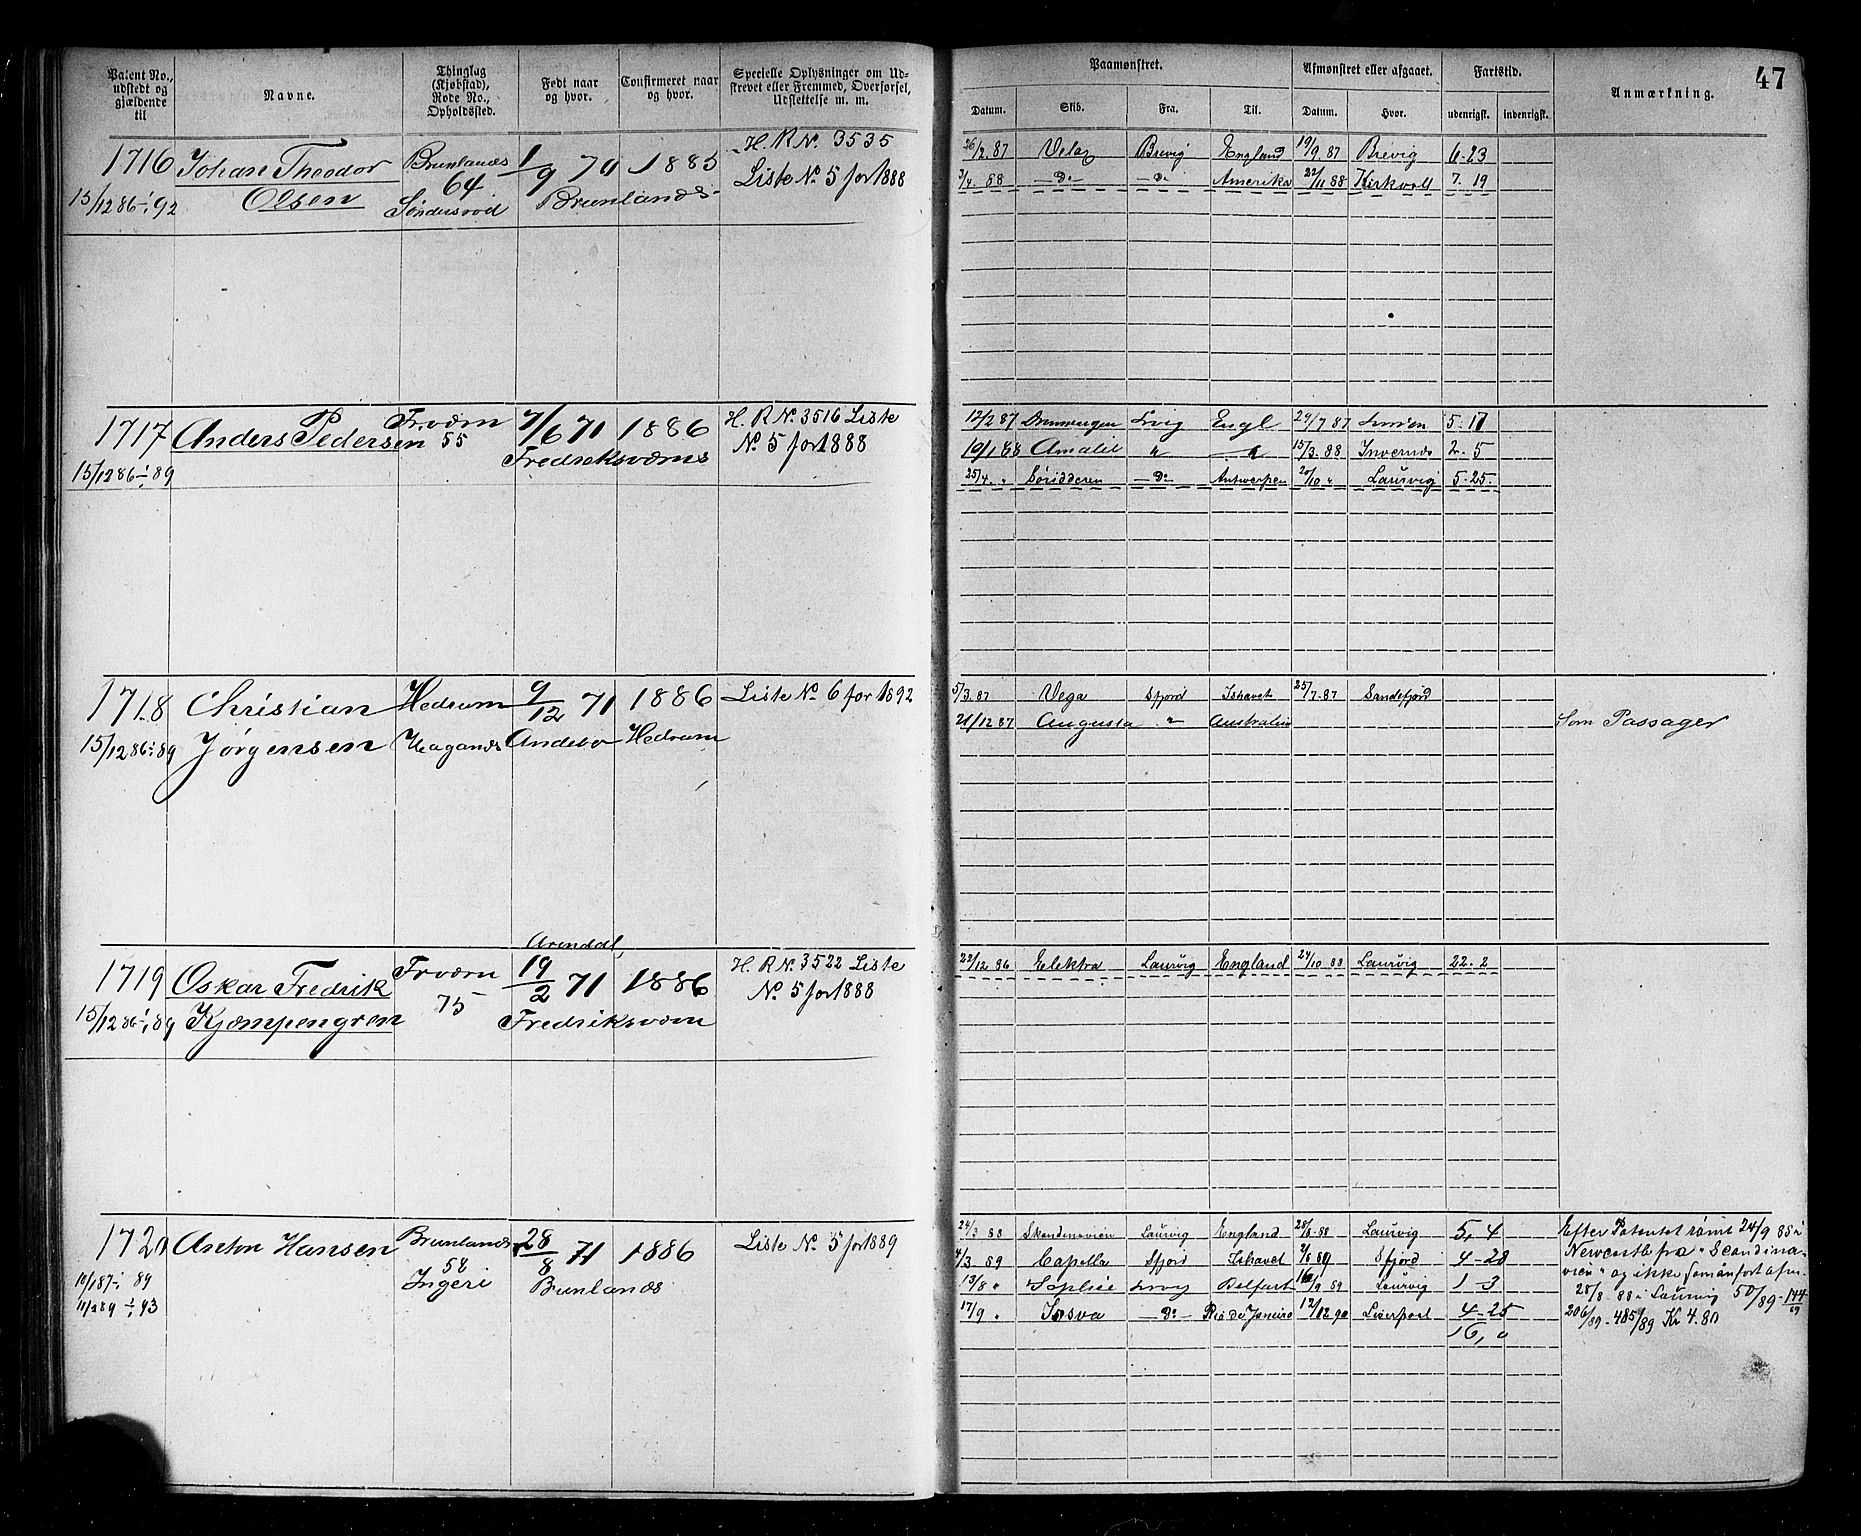 47
Patent No., udstedt og gjældende til
Navne.
Thinglag (Kjøbstad), Rode No., Opholdssted.
Født naar og hvor.
Confirmeret naar og hvor.
Specielle Oplysninger om Udskrevet eller Fremmed, Overførsel, Udslettelse m. m.
Paamønstret.
Afmønstret eller afgaaet.
Fartstid.
Anmærkning.
Datum. Skib. Fra. Til. Datum. Hvor. udenrigsk. indenrigsk.
1716 Johan Theodor Brunlanæs 1/9 70 1885 H. R No. 3535
15/12 86 - 1/1 92 Olsen 64 Brunlanæs Liste No. 5 for 1888
26/2.87 Brevig England 19/9.87 Brevig 6-23
3/4.88 -Do- -Do- Amerika 22/11 88 Kirkvall 7.19
1717 Anders Pedersen Frværn 7/6 71 1886 H. R No. 3516 Liste
15/12 86 - 1/1 89 55 Fredriksværns No. 5 for 1888
12/2 87 Lvig Engl 29/7 87 5-17
19/1 88 Amalie " 15/3.88 Invernes 2.5
25/4. " -Do- Antwerpen 20/10 " Laurvig 5-25.
1718 Christian Hedrum 9/12 71 1886 Liste No. 6 for 1892
15/12 86 - 1/1 89 Jørgensen Haganæs Andebo Hedrum
5/3.87 Vega Sfjord Ishavet 25/7.87 Sandefjord
21/12 87 Augusta " Australien Som Passager
Arendal,
1719 Oskar Fredrik Frværn 19/2 71 1886 H. R No. 3522 Liste
15/12 86 - 1/1 89 Kjæmpengren 75 Fredriksværn No. 5 for 1888
22/12 86 Elektra Laurvig England 24/10 88 Laurvig 22.2
1720 Anton Hansen Brunlanæs 28/8 71 1886 Liste No. 5 for 1889
10/1 87 - 1/1 89 58 Ingeri Brunlanæs
11/2 89 - 1/1 93
24/3 88 Skandinavien Laurvig England 28/8.88 Laurvig 5, 4
4/3.89 Capella Sfjord Ishavet 2/8 89 Sfjord 4-28
13/8 " Sophie Lrvig Belfast 16/9.89 Laurvig 1-3
17/9 " -Do- Rio de Janeiro 12/2.90 Liverpool 4-25
16, 0
Efter Patentet rømt 24/9 88 i
Newcastle fra "Scandina-
vien" og ikke somanført afm.
28/8 88 i Laurvig 50/89 - 144/89
206/89 - 485/89 Kr 4.80